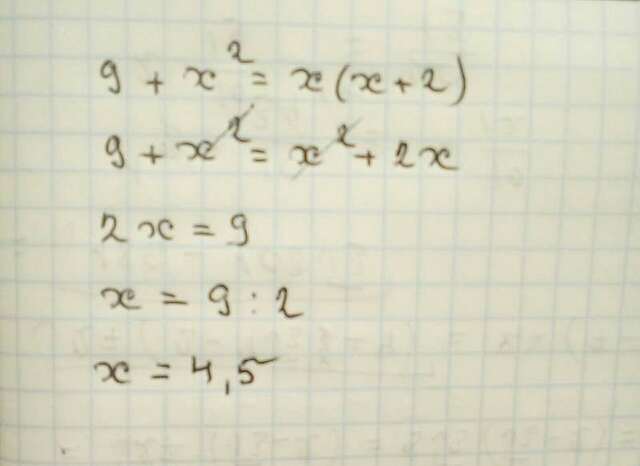 9 + x² = x(x + 2)
9 + x² = x² + 2x
2x = 9
x = 9 : 2
x = 4,5